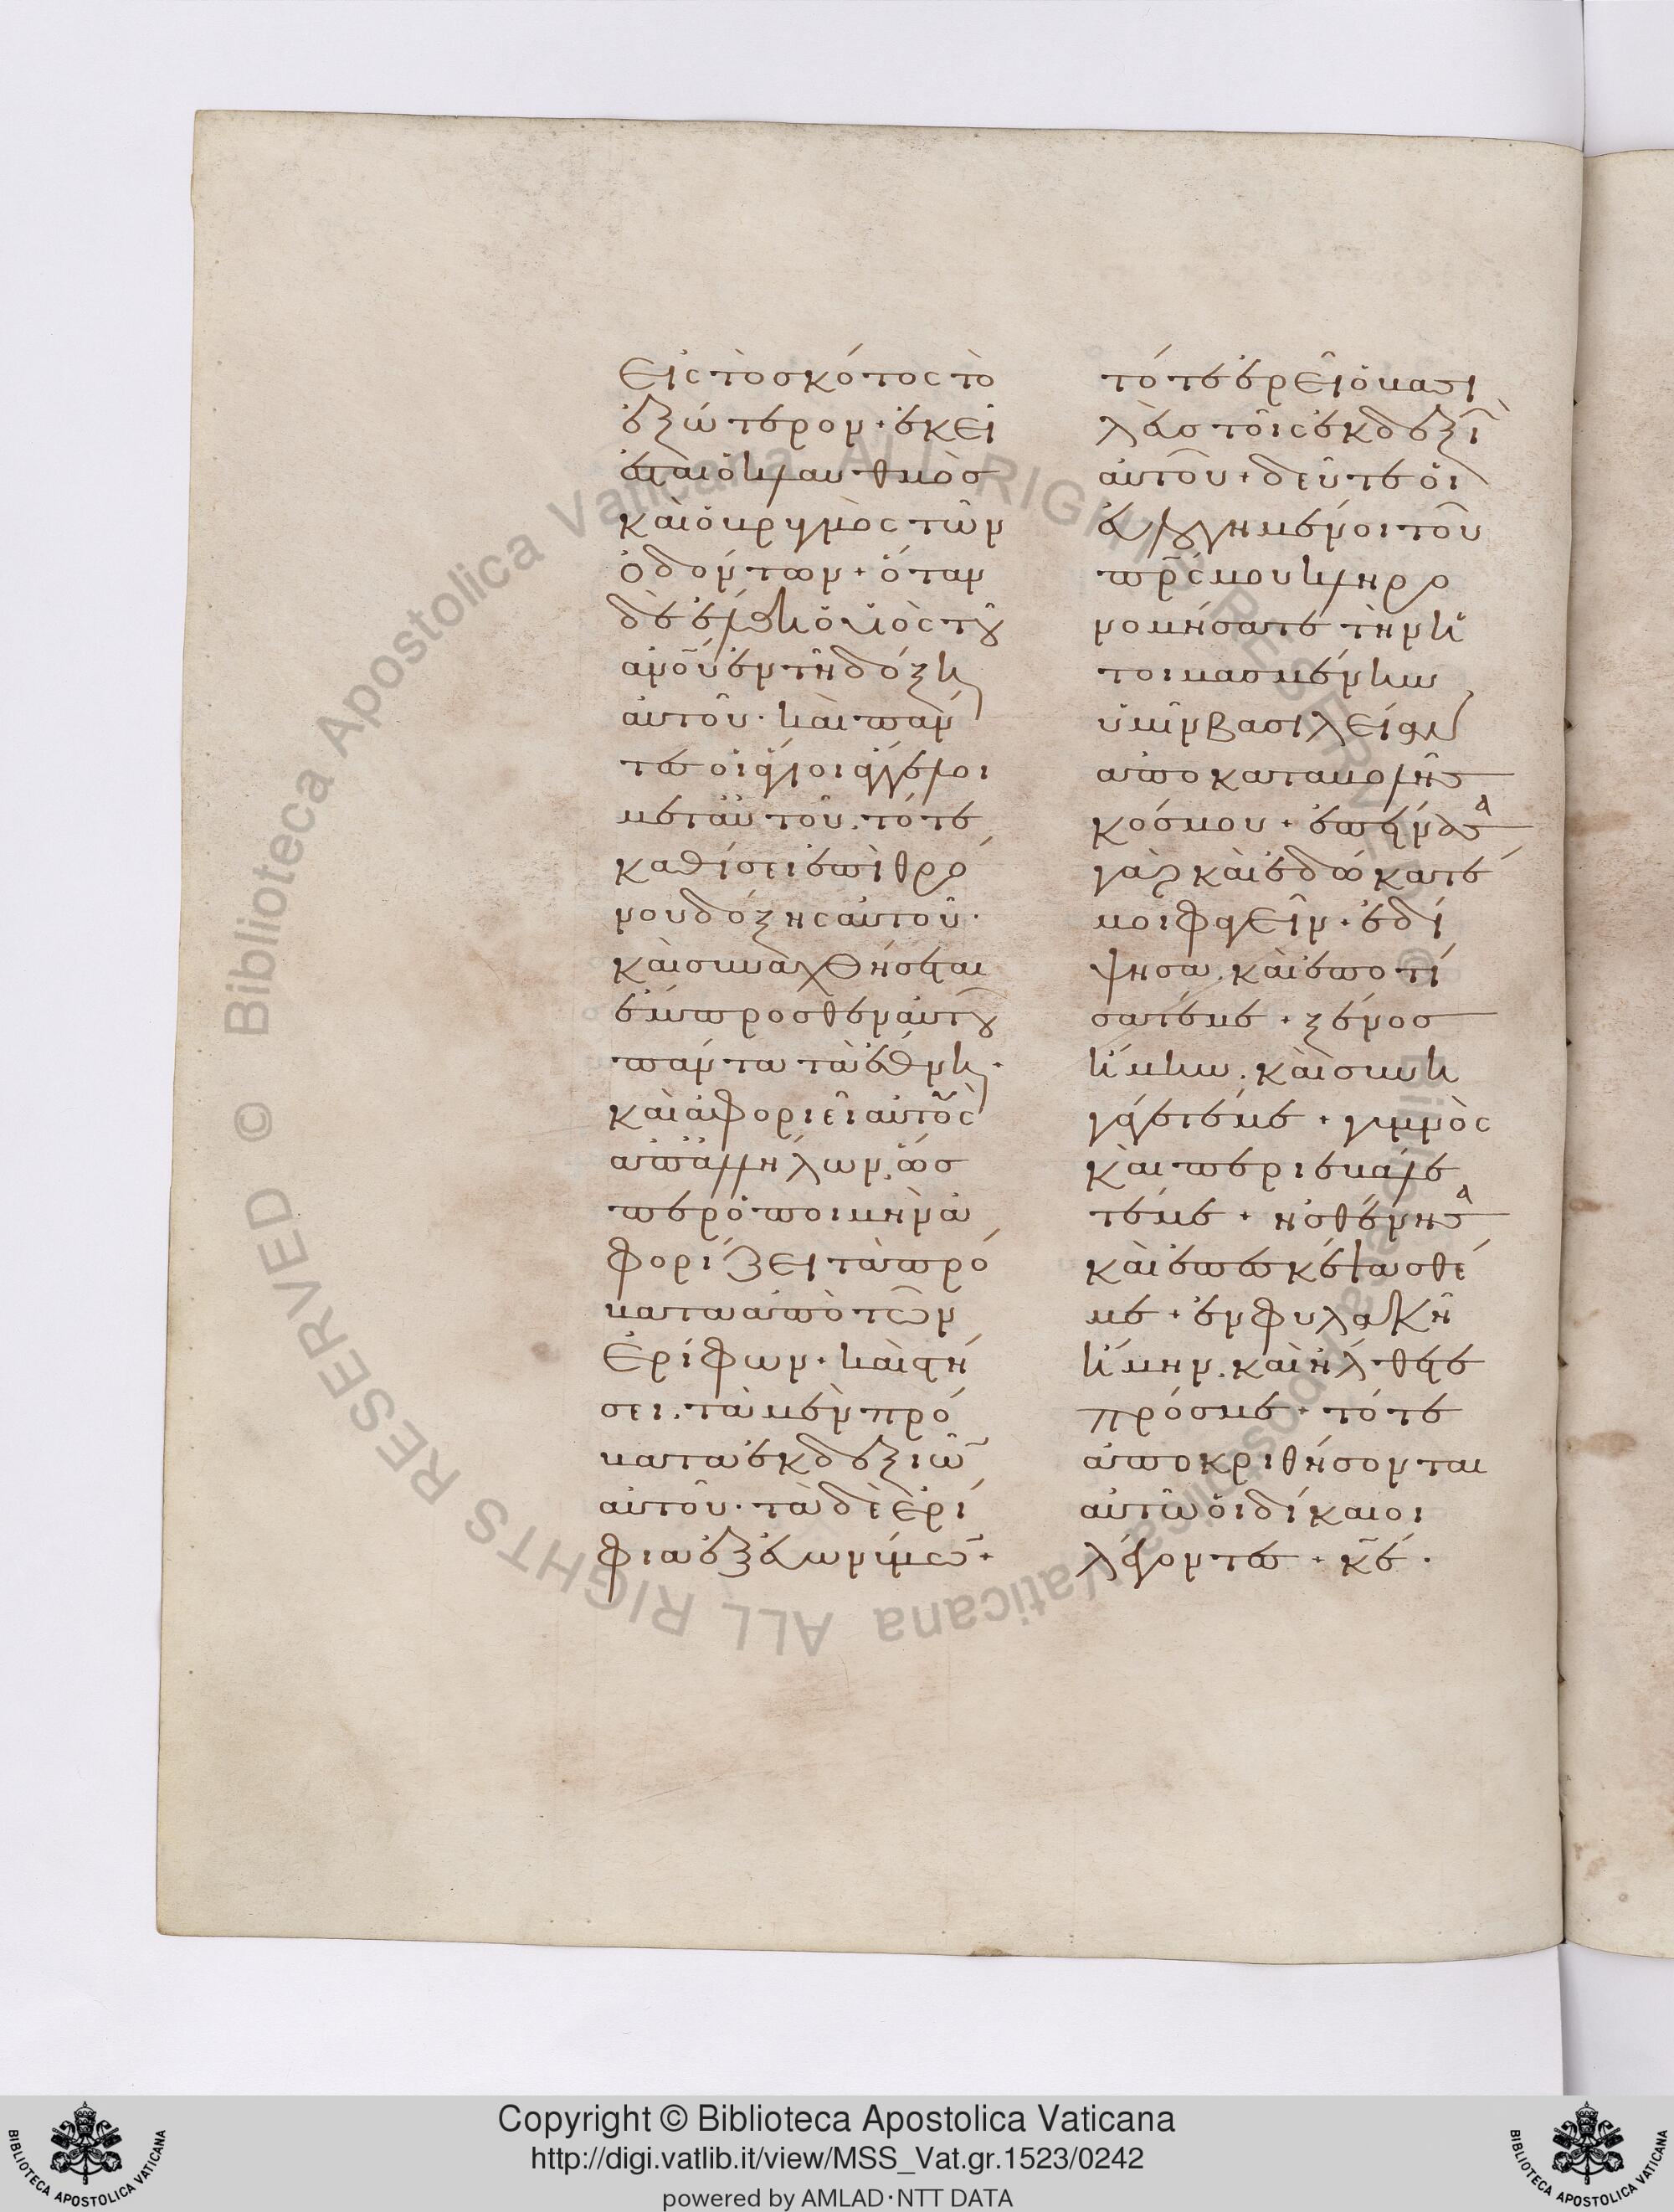 εἰς τὸ σκότος τὸ
ἐξώτερον· ἐκεῖ
ἔσται ὁ κλαυθμὸσ
καὶ ὁ βρυγμὸς τῶν
ὀδόντων· ὅταν
δὲ ἔλθη ὁ υἱὸς τοῦ
ἀνοῦ ἐν τῆ δόξη
αὐτοῦ· καὶ πάν
τες οἱ ἅγιοι ἄγγελοι
μετ αὐτοῦ· τότε
καθίσει ἐπὶ θρό
νου δόξης αὐτοῦ·
καὶ συναχθήσεται
ἔμπροσθεν αὐτοῦ
πάντα τὰ ἔθνη·
καὶ ἀφοριεῖ αὐτοὺς
ἀπ ἀλλήλων· ὥσ
περ ὁ ποιμὴν ἀ
φορίζει τὰ πρό
βατα ἀπὸ τῶν
ἐρίφων· καὶ στή
σει· τὰ μὲν πρό
βατα ἐκ δεξιῶν
αὐτοῦ· τὰ δὲ ἐρί
φια ἐξ εὐωνύμων·
τότε ἐρεῖ ὁ βασι
λεὺσ τοῖς ἐκ δεξιῶν
αὐτοῦ· δεῦτε οἱ
εὐλογημένοι τοῦ
πρς μου κληρο
νομήσατε τὴν ἡ
τοιμασμένην
ὑμῖν βασιλείαν
ἀπο καταβολῆς
κόσμου· ἐπείνασα
γὰρ καὶ ἐδώκατέ
μοι φαγεῖν· ἐδί
ψησα· καὶ ἐποτί
σατέ με· ξένοσ
ἤμην· καὶ συνη
γάγετέ με· γυμνὸς
καὶ περιεβάλε
τέ με· ἠσθένησα
καὶ ἐπεσκέψασθέ
με· ἐν φυλακῆ
ἤμην· καὶ ἤλθετε
πρός με· τότε
ἀποκριθήσονται
αὐτῶ οἱ δίκαιοι
λέγοντες· κε·
Copyright © Biblioteca Apostolica Vaticana
http://digi.vatlib.it/view/MSS_Vat.gr.1523/0242
powered by AMLAD·NTT DATA
BIBLIOTECA APOSTOLICA VATICANA
BIBLIOTECA APOSTOLICA VATICANA
© Biblioteca Apostolica Vaticana ALL RIGHTS RESERVED
© Biblioteca Apostolica Vaticana ALL RIGHTS RESERVED